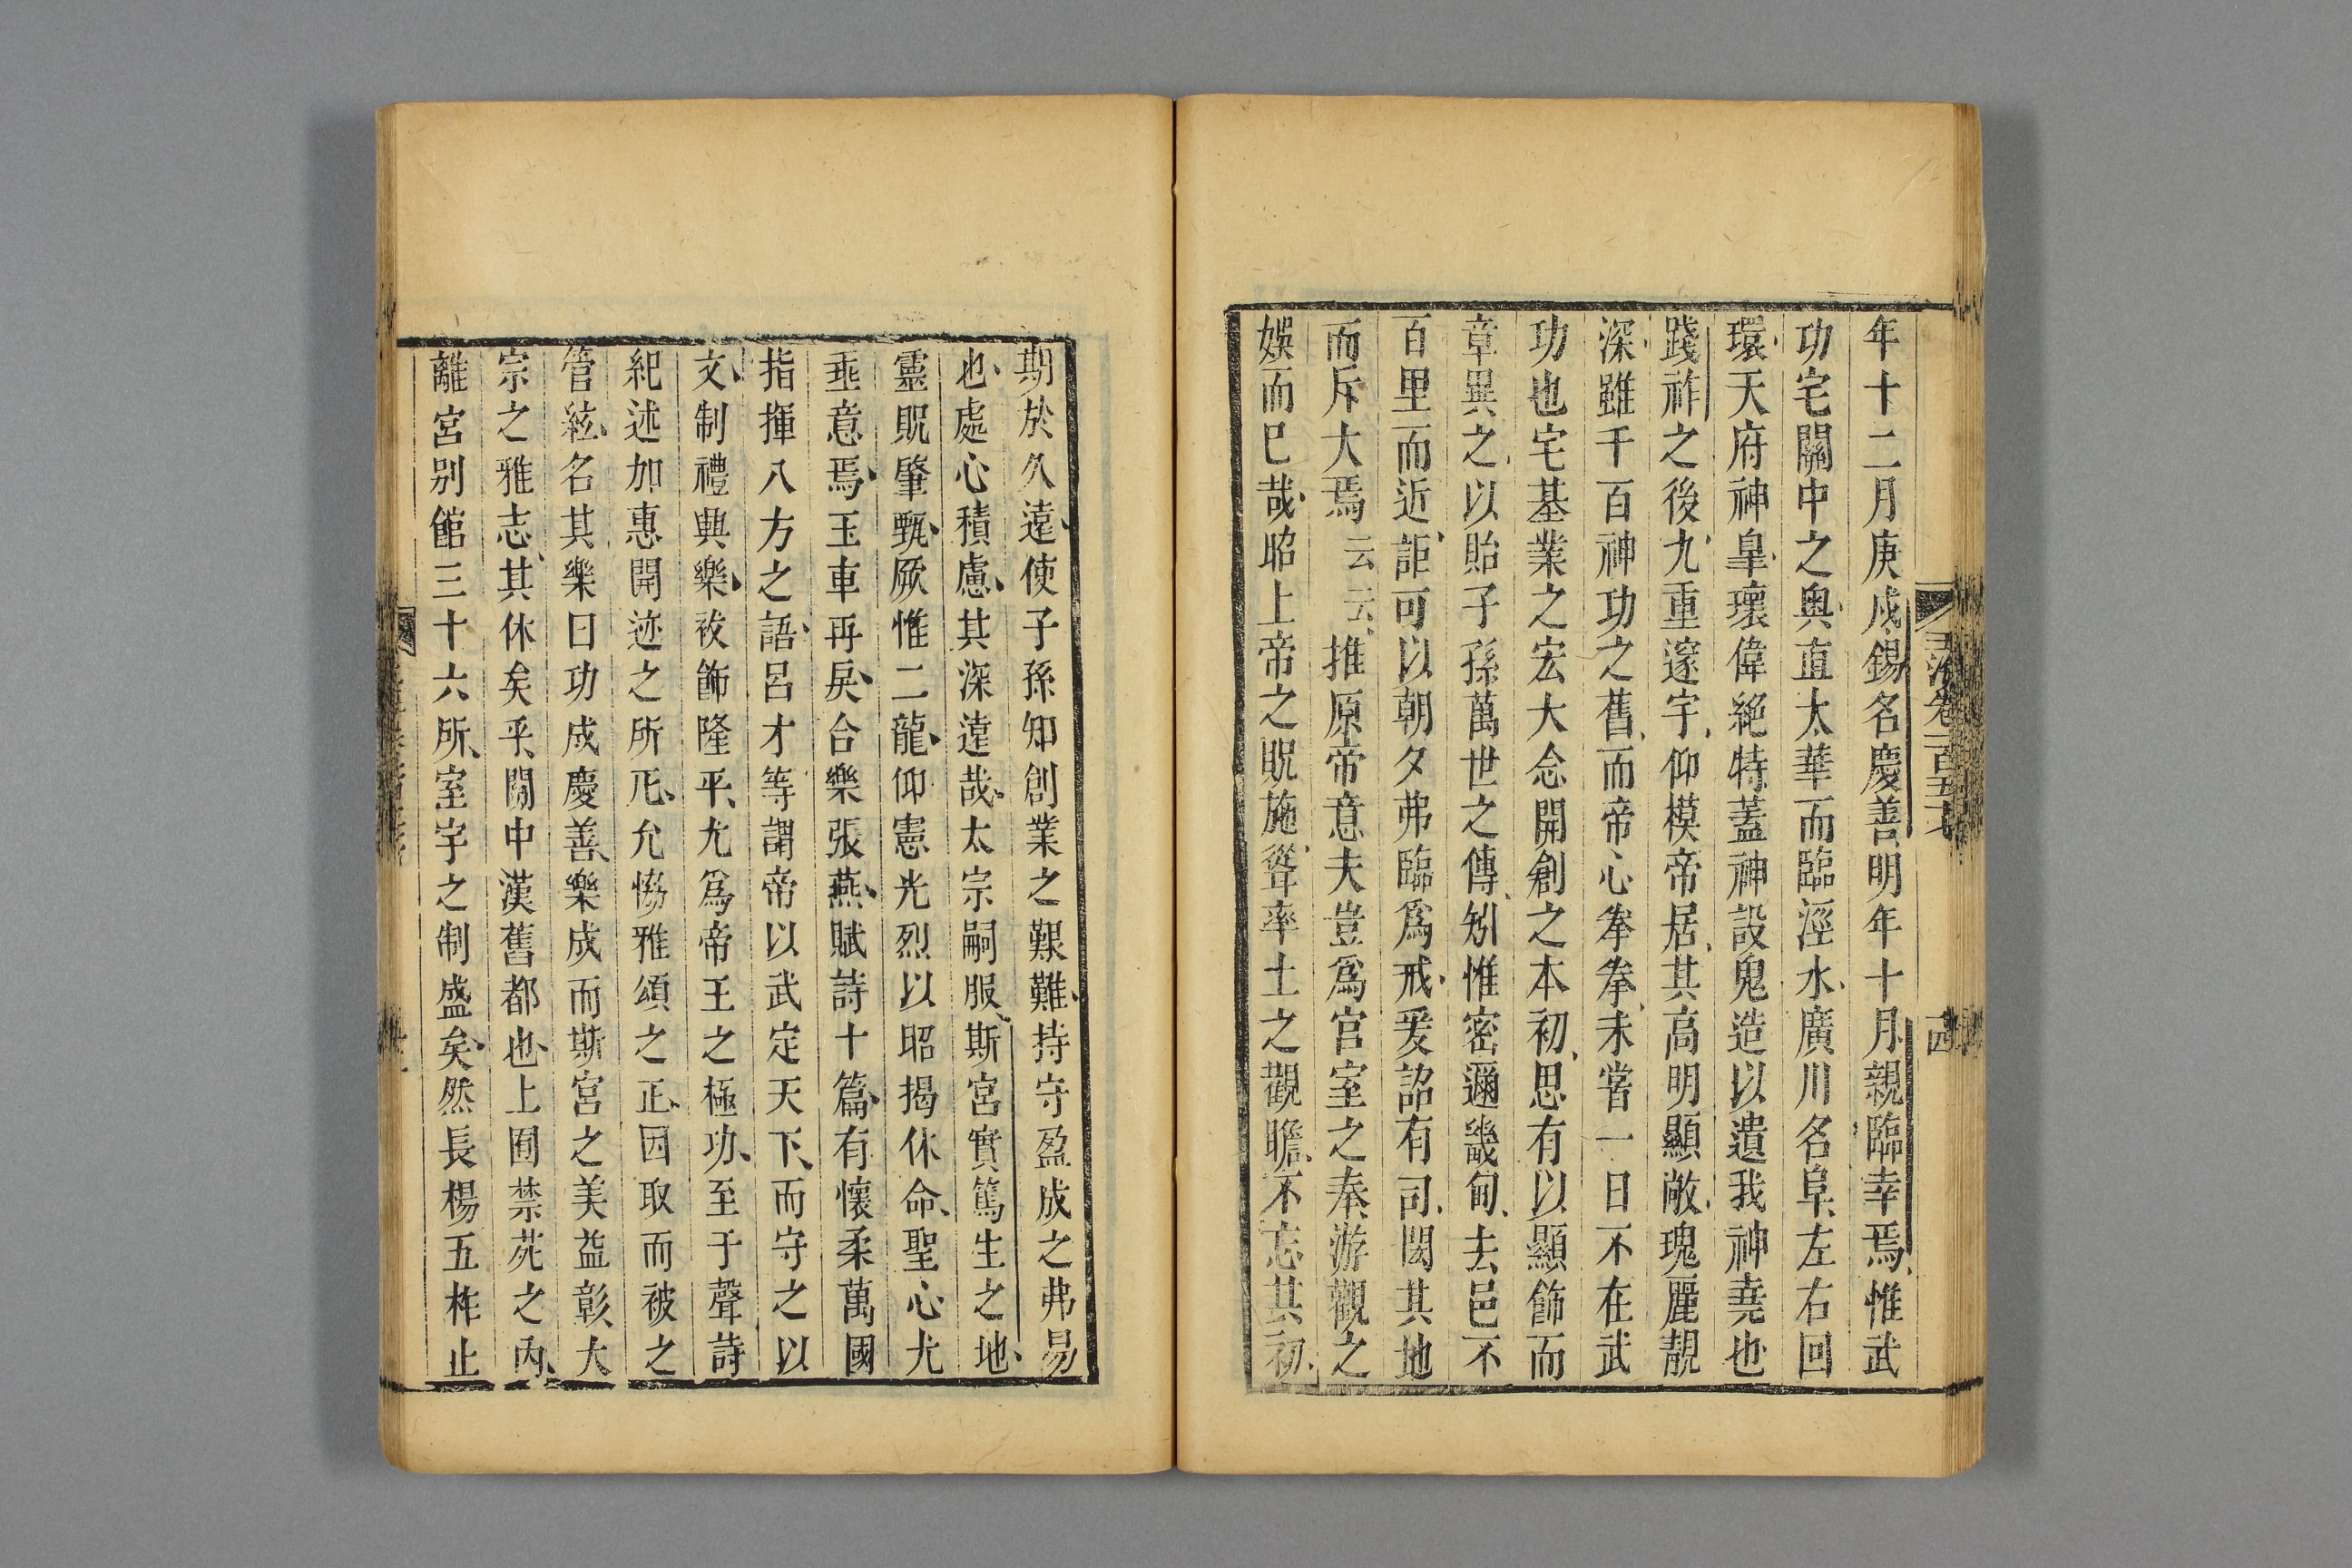 年十二月庚戌錫名慶善明年十月親臨幸焉惟武
功宅關中之奧直太華而臨涇水廣川名阜左右回
環天府神皐瓌偉絕特蓋神設鬼造以遺我神堯也
踐祚之後九重邃宇仰模帝居其高明顯敞瑰麗靚
深雖千百神功之舊而帝心拳拳未嘗一日不在武
功也宅基業之宏大念開創之本初思有以顯飾而
章異之以貽子孫萬世之傳矧惟密邇畿甸去邑不
百里而近詎可以朝夕弗臨爲戒爰詔有司閎其地
而斥大焉云云推原帝意夫豈爲宮室之奉游觀之
娛而已哉昭上帝之貺施聳率土之觀瞻不忘其初
期於久遠使子孫知創業之艱難持守盈成之弗易
也處心積慮其深遠哉太宗嗣服斯宮實篤生之地
靈貺肇甄厥惟二龍仰憲光烈以昭揭休命聖心尤
垂意焉玉車再戾合樂張燕賦詩十篇有懷柔萬國
指揮八方之語呂才等謂帝以武定天下而守之以
文制禮興樂祓飾隆平尤爲帝王之極功至于聲詩
紀述加惠開迹之所尤允恊雅頌之正因取而被之
管絃名其樂曰功成慶善樂成而斯宮之美益彰大
宗之雅志其休矣乎關中漢舊都也上囿禁苑之內
離宮别館三十六所室宇之制盛矣然長楊五柞止